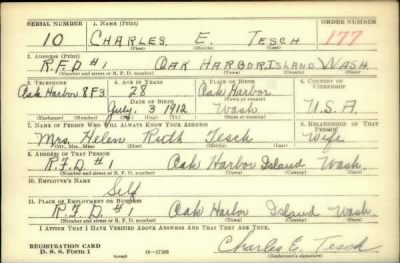 SERIAL NUMBER 1. NAME (Print) ORDER NUMBER
10 CHARLES E. TESCH 177
(First) (Middle) (Last)
2. ADDRESS (Print)
R.F.D #1 OAK HARBOR, ISLAND WASH.
(Number and street or R. F. D. number) (Town) (County) (State)
3. TELEPHONE 4. AGE IN YEARS 5. PLACE OF BIRTH 6. COUNTRY OF CITIZENSHIP
Oak Harbor 8F3 28 Oak Harbor
DATE OF BIRTH (Town or county)
July 3 1912 Wash. U.S.A
(Exchange) (Number) (Mo.) (Day) (Yr.) (State or country)
7. NAME OF PERSON WHO WILL ALWAYS KNOW YOUR ADDRESS 8. RELATIONSHIP OF THAT PERSON
Mrs. Helen Ruth Tesch Wife
(Mr., Mrs., Miss) (First) (Middle) (Last)
9. ADDRESS OF THAT PERSON
R.F.D #1 Oak Harbor Island Wash.
(Number and street or R. F. D. number) (Town) (County) (State)
10. EMPLOYER'S NAME
Self
11. PLACE OF EMPLOYMENT OR BUSINESS
R.F.D. #1 Oak Harbor Island Wash
(Number and street or R. F. D. number) (Town) (County) (State)
I AFFIRM THAT I HAVE VERIFIED ABOVE ANSWERS AND THAT THEY ARE TRUE.
REGISTRATION CARD
D. S. S. Form 1 Charles E. Tesch
(Registrant's signature)